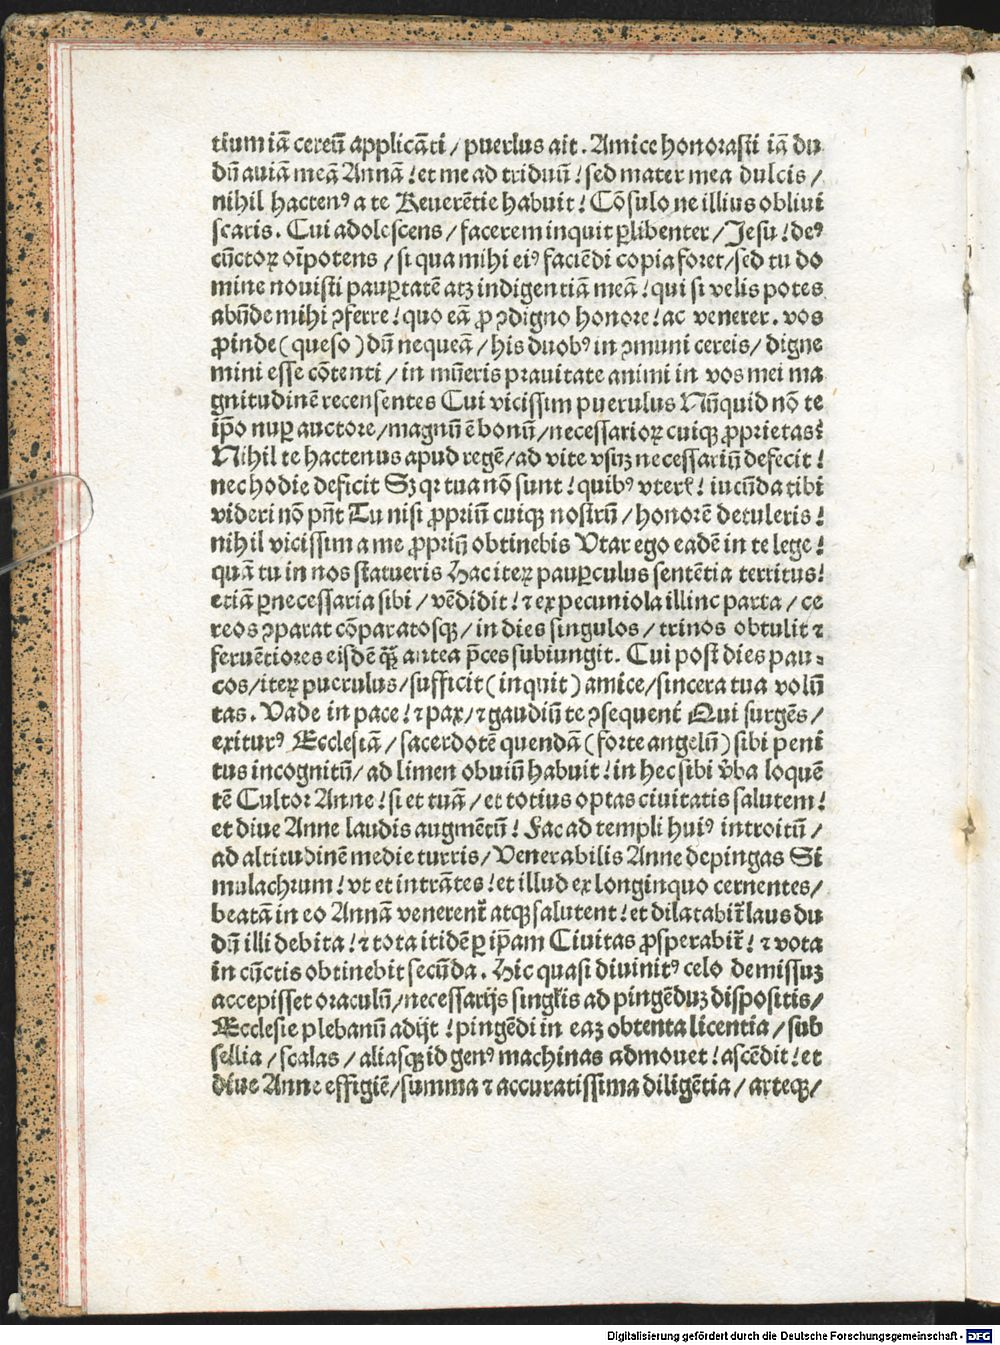 tium iā cereū applicāti / puerlus ait. Amice honorasti iā du
dū auiā meā Annā ! et me ad triduū ! sed mater mea dulcis /
nihil hactenꝰ a te Reuerētie habuit ! Cōsulo ne illius obliui
scaris. Cui adolescens / facerem inquit ꝑlibenter / Jesu ! deꝰ
cūctoꝝ oīpotens / si qua mihi eiꝰ faciēdi copia foret / sed tu do
mine nouisti pauꝑtatē atꝫ indigentiā meā ! qui si velis potes
abūde mihi ꝯferre ! quo eā ꝓ ꝯdigno honore ! ac venerer. vos
ꝓinde ( queso ) dū nequeā / his duobꝰ in ꝯmuni cereis / digne
mini esse cōtenti / in mūeris prauitate animi in vos mei ma
gnitudinē recensentes Cui vicissim puerulus Nūquid nō te
ip̄o nuꝑ auctore / magnū ē bonū / necessarioꝝ cuiqꝫ ꝓprietas?
Nihil te hactenus apud regē / ad vite vsuꝫ necessariū defecit !
nec hodie deficit Sꝫ qꝛ tua nō sunt ! quibꝰ vterꝭ ! iucūda tibi
videri nō pn̄t Tu nisi ꝓpriū cuiqꝫ nostrū / honorē detuleris !
nihil vicissim a me ꝓpriū obtinebis Vtar ego eadē in te lege !
quā tu in nos statueris Hac iteꝝ pauꝑculus sentētia territus !
etiā ꝑnecessaria sibi / vēdidit ! ⁊ ex pecuniola illinc parta / ce
reos ꝯparat cōparatosqꝫ / in dies singulos / trinos obtulit ⁊
feruētiores eisdē qꝫ̄ antea p̄ces subiungit. Cui post dies pau⸗
cos / iteꝝ puerulus / sufficit ( inquit ) amice / sincera tua volū
tas. Vade in pace ! ⁊ pax / ⁊ gaudiū te ꝯsequent Qui surgēs /
exiturꝰ Ecclesiā / sacerdotē quendā ( forte angelū ) sibi peni
tus incognitū / ad limen obuiū habuit ! in hec sibi v̓ba loquē
tē Cultor Anne ! si et tuā / et totius optas ciuitatis salutem !
et diue Anne laudis augmētū ! Fac ad templi huiꝰ introitū /
ad altitudinē medie turris / Venerabilis Anne depingas Si
mulachrum ! vt et intrātes ! et illud ex longinquo cernentes /
beatā in eo Annā venerent᷑ atqꝫ salutent ! et dilatabit᷑ laus du
dū illi debita ! ⁊ tota itidē ꝑ ip̄am Ciuitas ꝓsperabit᷑ ! ⁊ vota
in cūctis obtinebit secūda. Hic quasi diuinitꝰ celo demissuꝫ
accepisset oraculū / necessarijs singl̓is ad pingēduꝫ dispositis /
Ecclesie plebanū adijt ! pingēdi in eaꝫ obtenta licentia / sub
sellia / scalas / aliasqꝫ id genꝰ machinas admouet ! ascēdit ! et
diue Anne effigiē / summa ⁊ accuratissima diligētia / arteqꝫ /
Digitalisierung gefördert durch die Deutsche Forschungsgemeinschaft - DFG